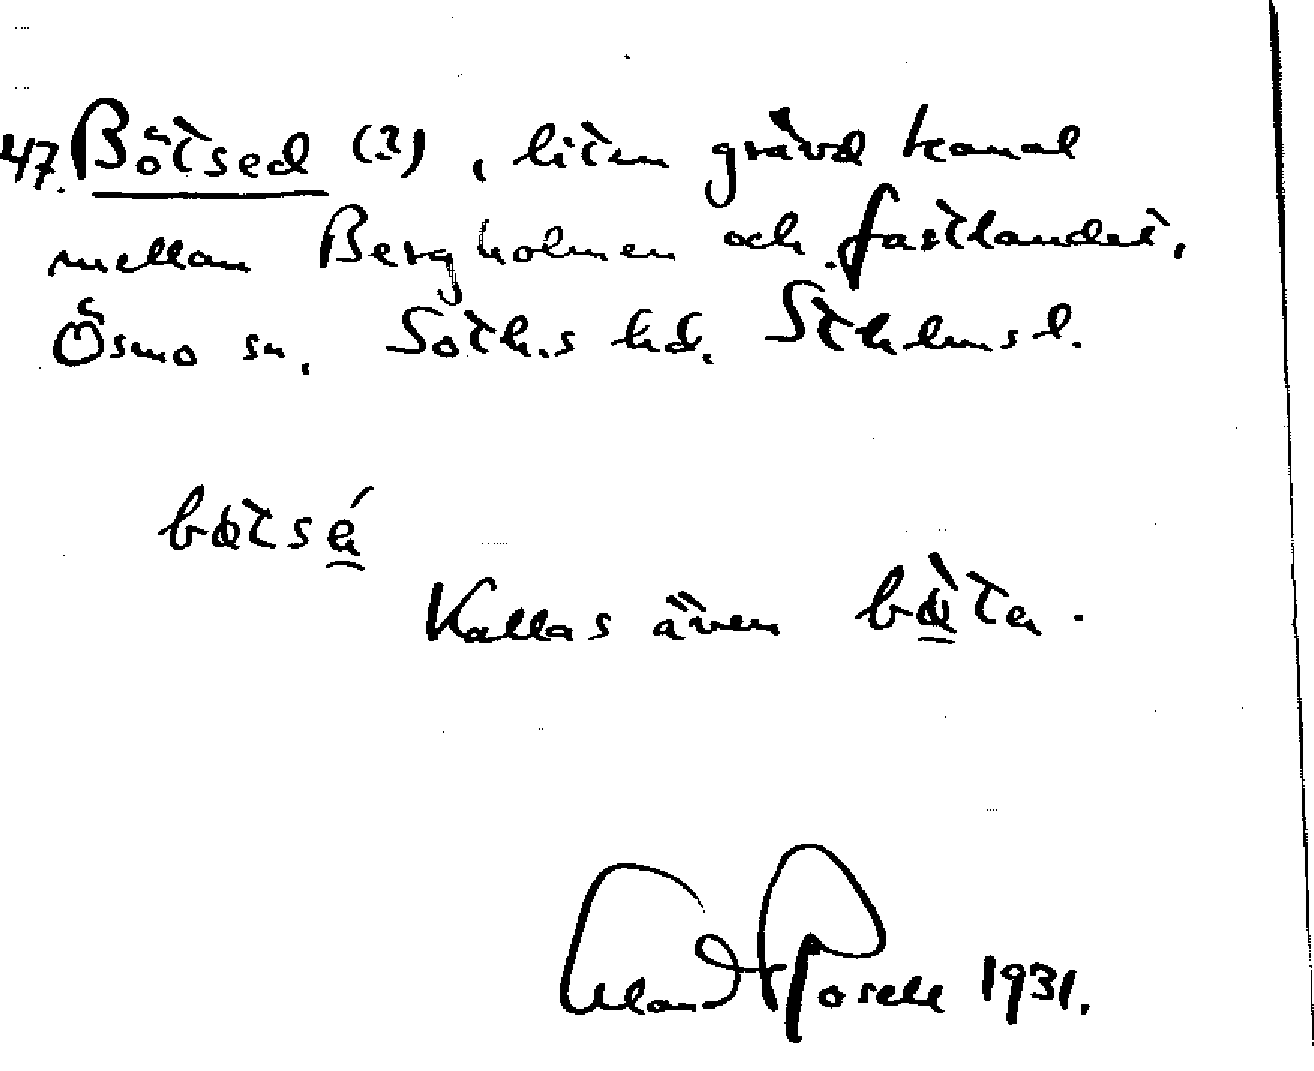 47. Bötsed (?), liten grävd kanal
mellan Bergholmen och fastlandet,
Ösmo sn, Soth.s hd. Sthlms l.
bøtsé
Kallas även bø̀ta.
1931.